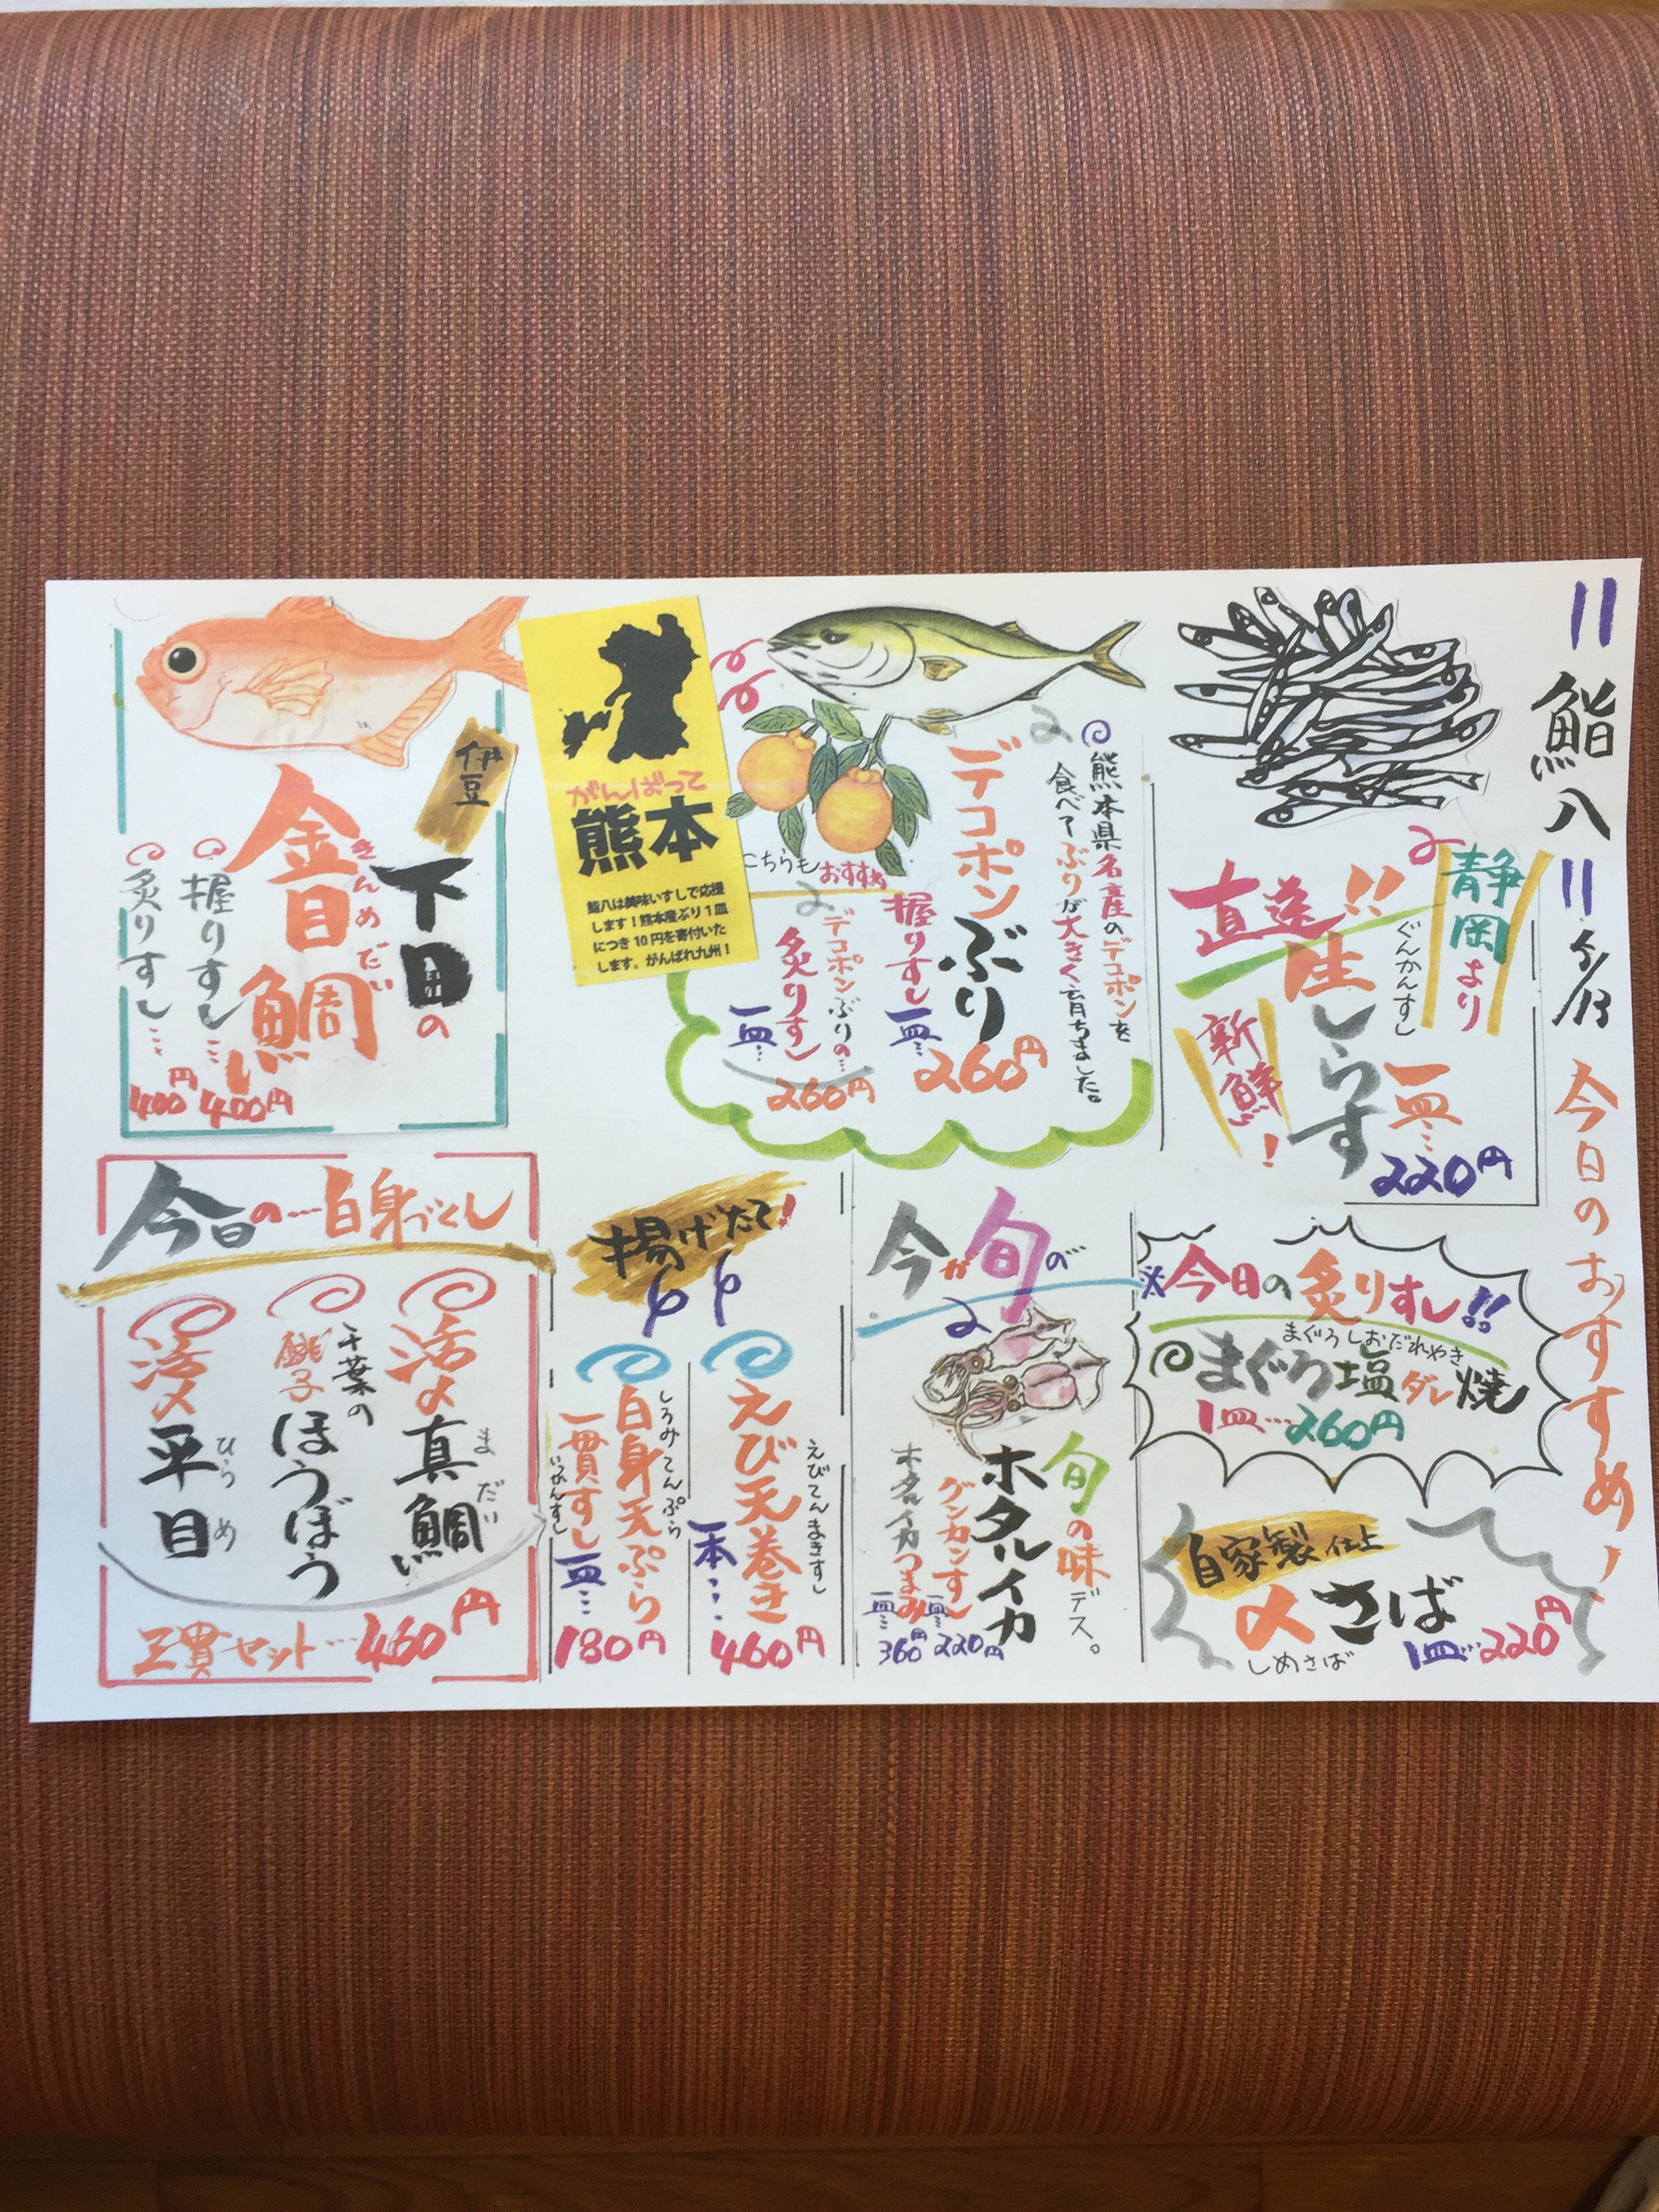 鮨八
5/13
今日のおすすめ!
静岡より
直送!!
ぐんかんすし
生しらす
新鮮!
一皿…
220円
熊本県名産のデコポンを
食べてぶりが大きく育ちました。
デコポンぶり
握りすし
一皿…
260円
こちらもおすすめ
デコポンぶりの…
炙りすし
一皿…
260円
がんばって
熊本
鮨八は美味いすしで応援
します！熊本産ぶり1皿
につき10円を寄付いた
します。がんばれ九州！
伊豆
下田の
金目鯛
きんめだい
握りすし…
400円
炙りすし…
400円
※今日の炙りすし!!
まぐろしおだれやき
まぐろ塩ダレ焼
1皿…260円
自家製仕上
〆さば
しめさば
1皿…220円
今が旬の
旬の味デス。
ホタルイカ
グンカンすし
一皿…
220円
ホタルイカつまみ
一皿…
360円
揚げたて!
えびてんまきすし
えび天巻き
一本…
460円
しろみてんぷら
白身天ぷら
一貫すし
いっかんすし
一皿…
180円
今日の…白身づくし
活〆真鯛
まだい
千葉の
銚子
ほうぼう
活〆平目
ひらめ
三貫セット…460円